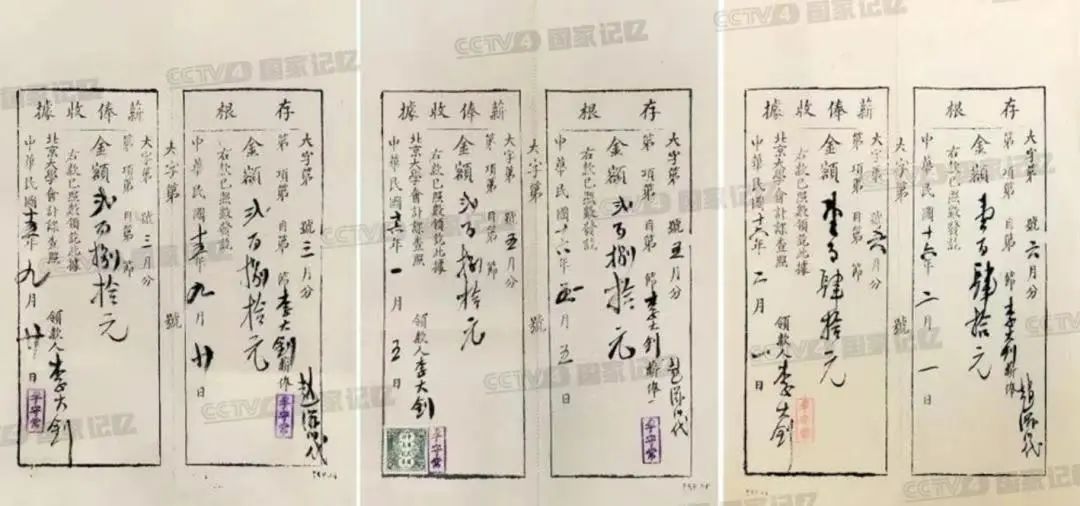 存根
大字第 號三月分
第 項第 目第 節李大釗薪俸
金額弍百捌拾元
右款已照數發訖
中華民國十五年九月廿日
趙添代
李守常
大字第 號
薪俸收據
大字第 號三月分
第 項第 目第 節
金額弍百捌拾元
右款已照數領訖此據
北京大學會計課查照
中華民國十五年九月廿日
領款人李大釗
李守常
存根
大字第 號五月分
第 項第 目第 節李大釗薪俸
金額弍百捌拾元
右款已照數發訖
中華民國十六年 月五日
李守常
大字第 號
薪俸收據
大字第 號五月分
第 項第 目第 節
金額弍百捌拾元
右款已照數領訖此據
北京大學會計課查照
中華民國十六年一月五日
領款人李大釗
李守常
存根
大字第 號六月分
第 項第 目第 節李大釗薪俸
金額壹百肆拾元
右款已照數發訖
中華民國十六年二月一日
大字第 號
薪俸收據
大字第 號六月分
第 項第 目第 節
金額壹百肆拾元
右款已照數領訖此據
北京大學會計課查照
中華民國十六年二月一日
領款人李大釗
李守常
CCTV4 国家记忆
CCTV4 国家记忆
CCTV4 国家记忆
CCTV4 国家记忆
CCTV4 国家记忆
CCTV4 国家记忆